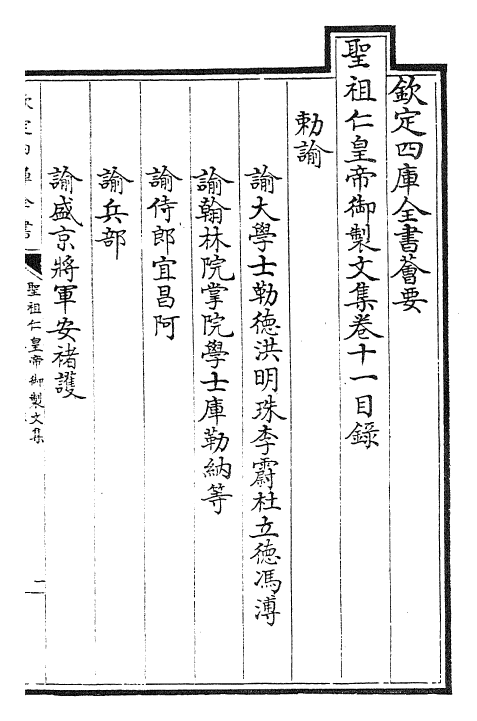 欽定四庫全書薈要
聖祖仁皇帝御製文集卷十一目錄
勅諭
諭大學士勒德洪明珠李霨杜立德馮溥
諭翰林院掌院學士庫勒納等
諭侍郎宜昌阿
諭兵部
諭盛京將軍安褚護
欽定四庫全書
聖祖仁皇帝御製文集
二